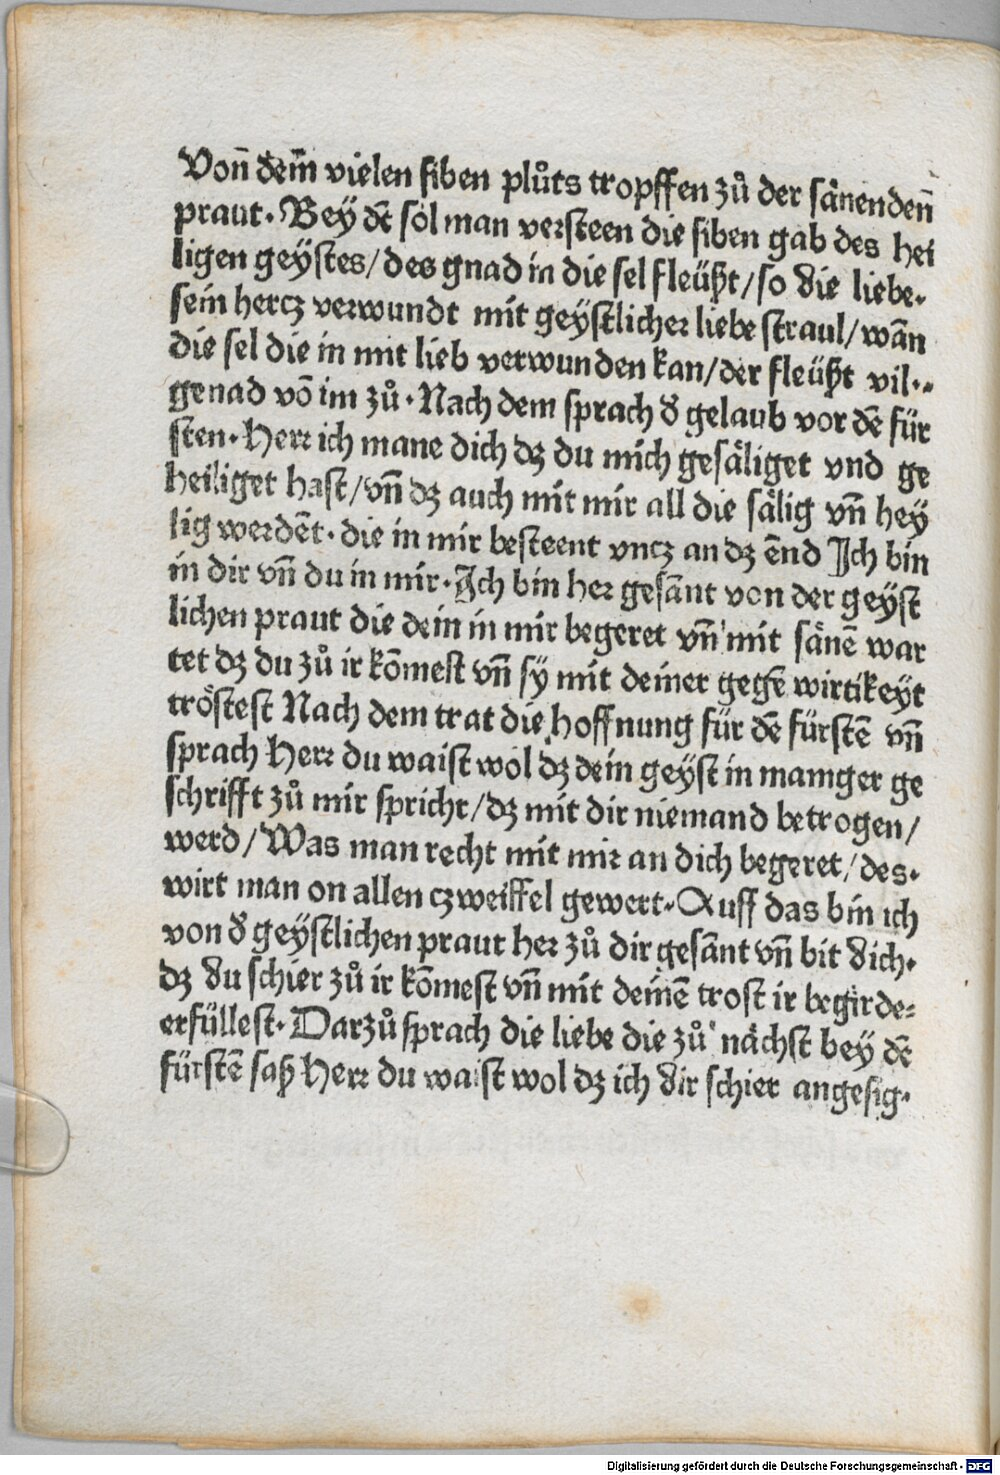 Von̄ dem̄ vielen siben plůts tropffen zů der sänenden̄
praut. Bey dē sol man versteen die siben gab des hei
ligen geystes/des gnad in die sel fleüßt/so die liebe.
sein hercz verwundt mit geystlicher liebe straul/wān
die sel die in mit lieb verwunden kan/der fleüßt vil..
genad vō im zů. Nach dem sprach d̕ gelaub vor dē für
sten. Herr ich mane dich dz du mich gesäliget vnd ge
heiliget hast/vn̄ dz auch mit mir all die sälig vn̄ hey
lig werdēt. die in mir besteent vncz an dz ēnd Ich bin
in dir vn̄ du in mir. Ich bin her gesānt von der geyst
lichen praut die dein in mir begeret vn̄ mit sänē war
tet dz du zů ir kōmest vn̄ sy mit deiner gegē wirtikeyt
tröstest Nach dem trat die hoffnung für dē fürstē vn̄
sprach Herr du waist wol dz dein geyst in mainger ge
schrifft zů mir spricht/dz mit dir niemand betrogen/
werd/Was man recht mit mir an dich begeret/des.
wirt man on allen czweiffel gewert. Auff das bin ich
von d̕ geystlichen praut her zů dir gesānt vn̄ bit dich.
dz du schier zů ir kōmest vn̄ mit deinē trost ir begirde=
erfüllest. Darzů sprach die liebe die zů nächst bey dē
fürstē saß Herr du waist wol dz ich dir schier angesig.
Digitalisierung gefördert durch die Deutsche Forschungsgemeinschaft - DFG